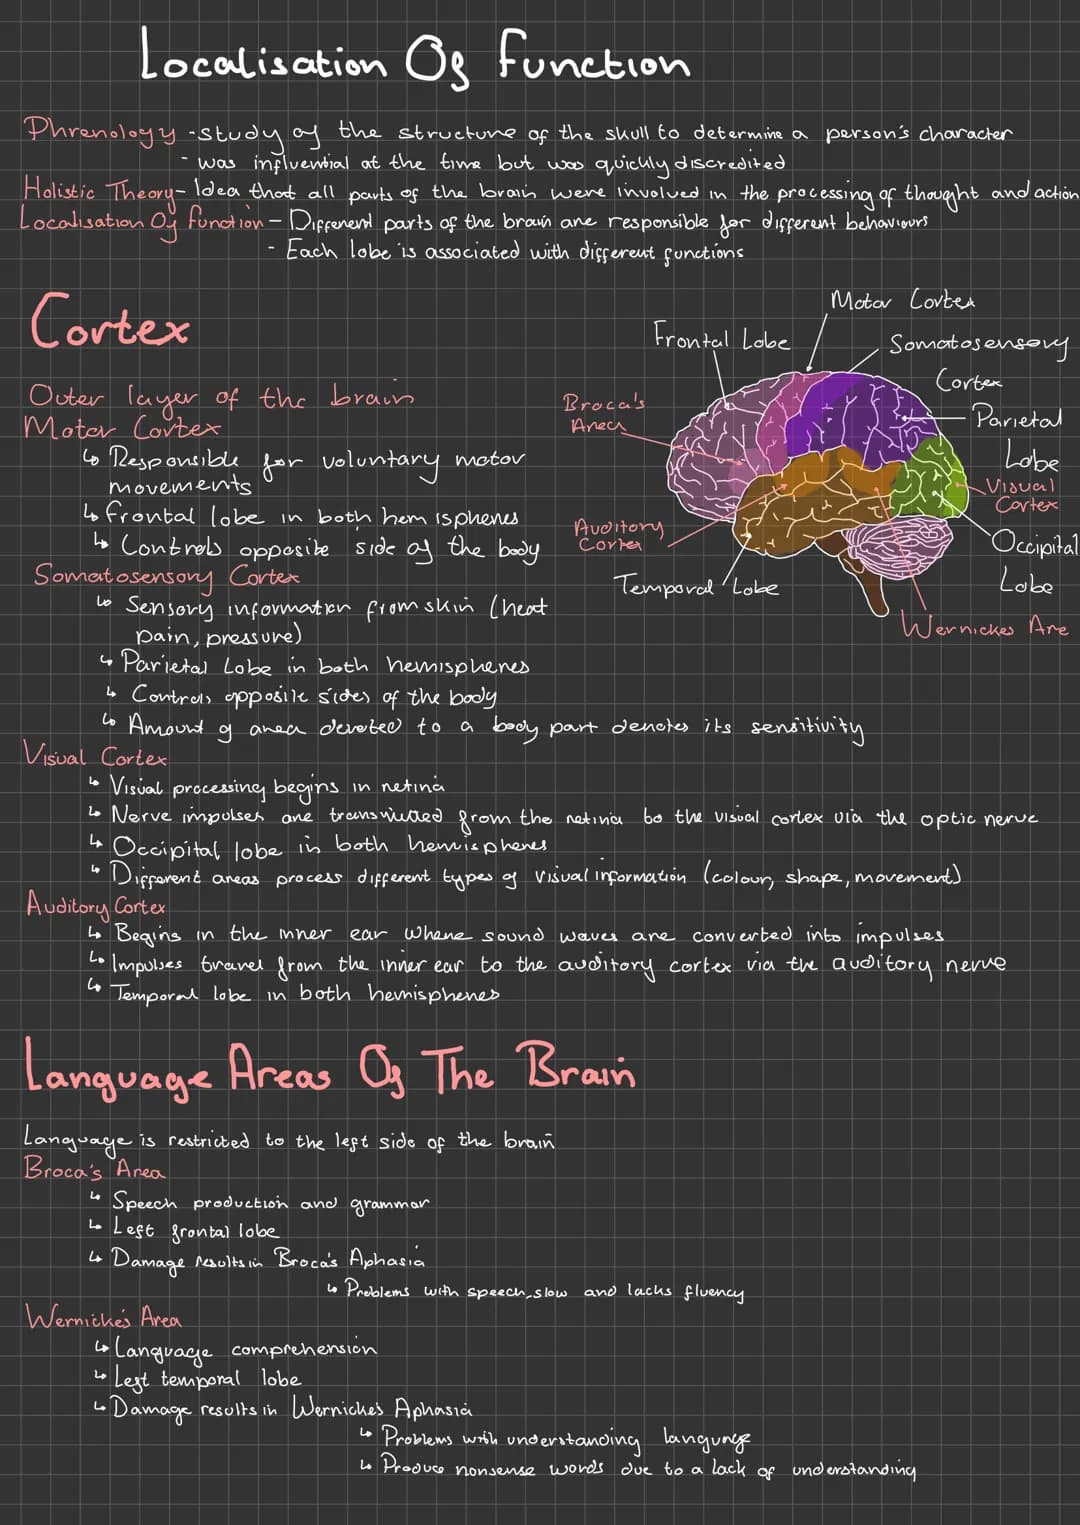 Localisation Of Function
Phrenology - study of the structure of the skull to determine a person's character
- was influential at the time but was quickly discredited
Holistic Theory - Idea that all parts of the brain were involved in the processing of thought and action
Localisation Of function - Different parts of the brain are responsible for different behaviours
- Each lobe is associated with different functions
Cortex
Outer layer of the brain
Motor Cortex
↳ Responsible for voluntary motor
movements
↳ frontal lobe in both hemispheres
↳ Controls opposite side of the body
Somatosensory Cortex
↳ Sensory information from skin (heat
pain, pressure)
↳ Parietal Lobe in both hemispheres
↳ Controls opposite sides of the body
↳ Amount of area devoted to a body part denotes its sensitivity
Motor Cortex
Frontal Lobe
Somatosensory
Cortex
Broca's
Area
Parietal
Lobe
Visual
Cortex
Auditory
Cortex
Occipital
Lobe
Temporal Lobe
Wernickes Are
Visual Cortex
↳ Visual processing begins in retina
↳ Nerve impulses are transmitted from the retina to the visual cortex via the optic nerve
↳ Occipital lobe in both hemispheres
↳ Different areas process different types of visual information (colour, shape, movement)
Auditory Cortex
↳ Begins in the inner ear where sound waves are converted into impulses
↳ Impulses travel from the inner ear to the auditory cortex via the auditory nerve
↳ Temporal lobe in both hemispheres
Language Areas Of The Brain
Language is restricted to the left side of the brain
Broca's Area
↳ Speech production and grammar
↳ Left frontal lobe
↳ Damage results in Broca's Aphasia
↳ Problems with speech, slow and lacks fluency
Wernicke's Area
↳ Language comprehension
↳ Left temporal lobe
↳ Damage results in Wernicke's Aphasia
↳ Problems with understanding language
↳ Produce nonsense words due to a lack of understanding